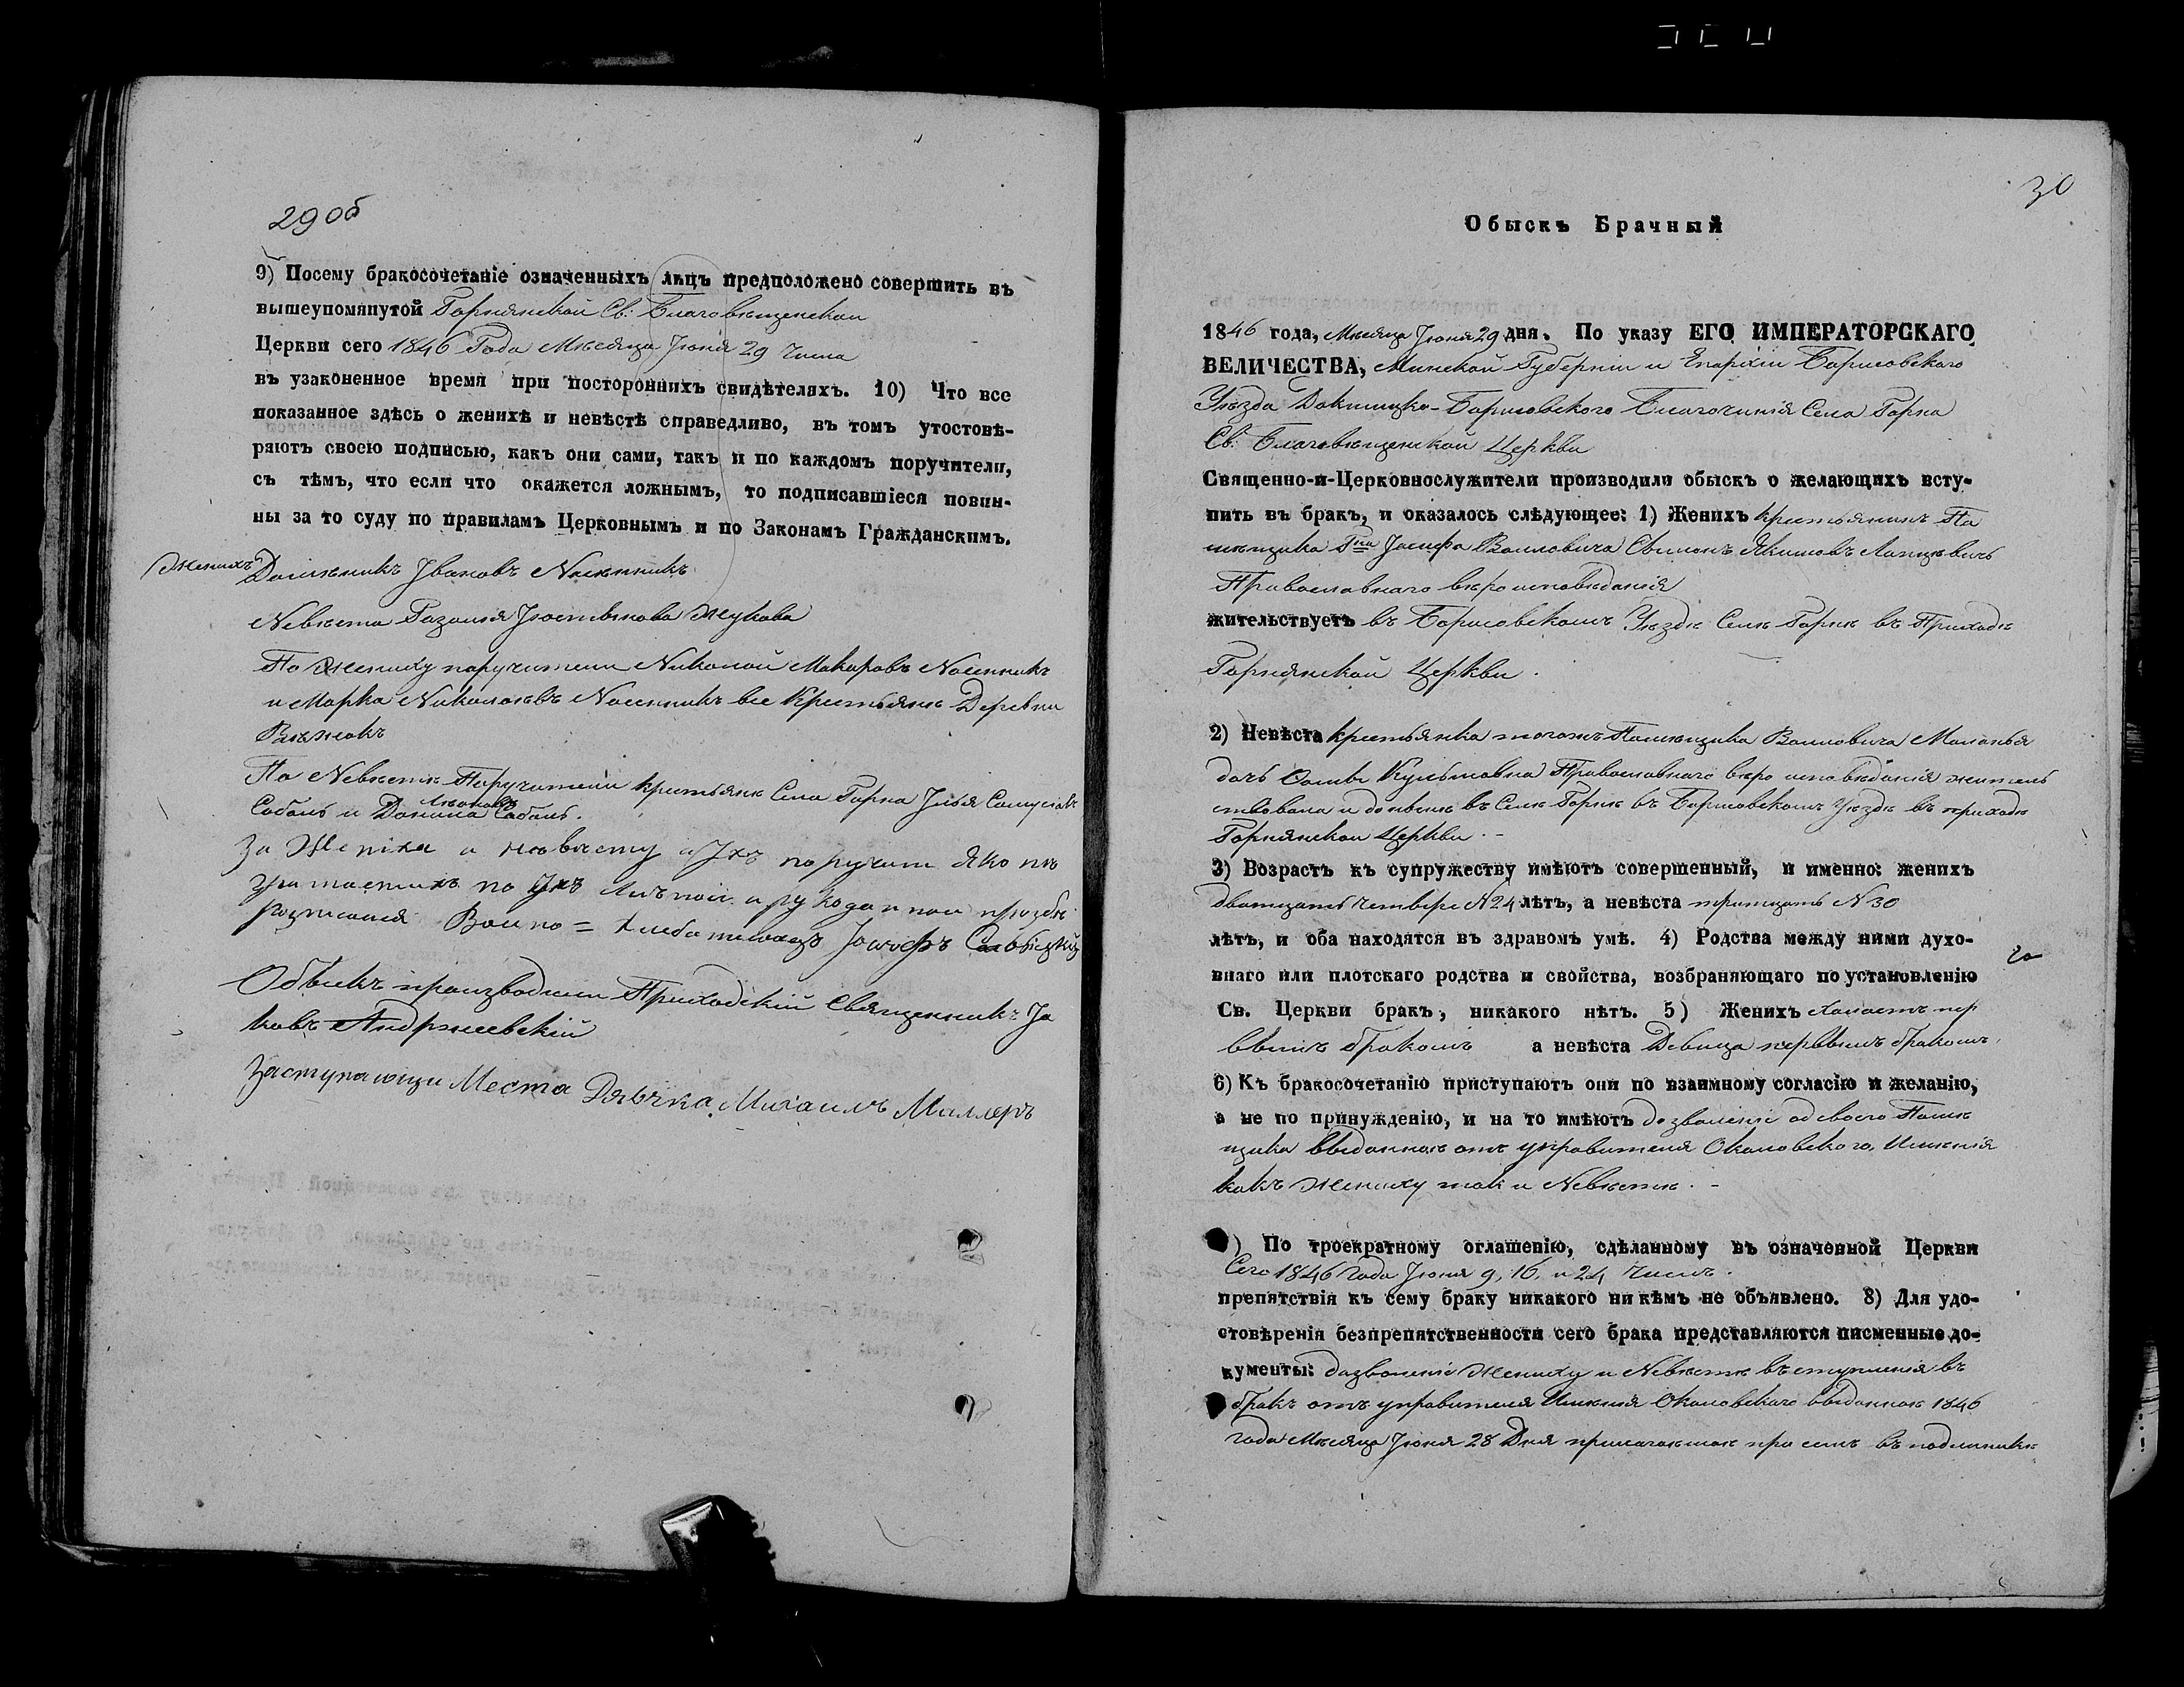 29 об
9) Посему бракосочетаніе означенныхъ лицъ предположено совершить въ
вышеупомянутой Горнянской Св: Благовѣщенской
Церкви сего 1846 Года Мѣсяца Іюня 29 Числа
въ узаконенное время при постороннихъ свидѣтеляхъ. 10) Что все
показанное здѣсь о женихѣ и невѣстѣ справедливо, въ томъ утостовѣ-
ряютъ своею подписью, какъ они сами, такъ и по каждомъ поручители,
съ тѣмъ, что если что окажется ложнымъ, то подписавшіеся повин-
ны за то суду по правиламъ Церковнымъ и по Законамъ Гражданскимъ.
Женихъ Івановъ
Невѣста Іюстынова Жукова
По Жениху поручители Николай Макаровъ
и Марка Николаевъ все Крестьяне Деревни
По Невѣстѣ Поручители крестьяне Села Горна Илья
Соболь и Данила Соболь.
За Жениха и невѣсту и Ихъ поручит. яко не
грамотныхъ по Ихъ личной и рукоданной прозбѣ
росписался Іосифъ
Обыскъ производили Приходскій Священникъ Іа
ковъ Андржеевскій
Заступающи Места Дячка Михаилъ Миллеръ
30
Обыскъ Брачный
1846 года, Мѣсяца Іюня 29 дня. По указу ЕГО ИМПЕРАТОРСКАГО
ВЕЛИЧЕСТВА, Минской Губерніи и Епархіи Борисовскаго
Уѣзда Докшицко-Борисовского Благочинія Села Горна
Св: Благовѣщенской Церкви
Священно-и-Церковнослужители производили обыскъ о желающихъ всту-
пить въ бракъ, и оказалось слѣдующее: 1) Женихъ крестьянинъ По
мѣщика Гна Іосифа Воловича Якимовъ
Православнаго вѣроисповѣданія
жительствуетъ въ Борисовскомъ Уѣздѣ Селѣ Горнѣ въ Приходѣ
Горнянской Церкви.
2) Невѣста крестьянка тогожъ Помѣщика Воловича Маланья
дочь Православнаго вѣро исповѣданія житель
ствовала и донынѣ въ Селѣ Горнѣ въ Борисовскомъ Уѣздѣ въ приходѣ
Горнянской Церкви.-
3) Возрастъ къ супружеству имѣютъ совершенный, и именно: женихъ
двотцать четыре N 24 лѣтъ, а невѣста тритцать N 30
лѣтъ, и оба находятся въ здравомъ умѣ. 4) Родства между ними духо-
внаго или плотскаго родства и свойства, возбраняющаго по установленію
Св. Церкви бракъ, никакого нѣтъ. 5) Женихъ холостъ пер
вымъ бракомъ а невѣста Дѣвица первымъ бракомъ.
6) Къ бракосочетанію приступаютъ они по взаимному согласію и желанію,
а не по принужденію, и на то имѣютъ дозволеніе од своего Помѣ
щика выданное отъ управителя Околовского, Имѣнія
какъ Жениху так и Невѣстѣ.-
) По троекратному оглашенію, сдѣланному въ означенной Церкви
Сего 1846 Года Іюня 9, 16, и 24 Числъ.
препятствія къ сему браку никакого ни кѣмъ не объявлено. 8) Для удо-
стовѣренія безпрепятственности сего брака представляются писменные до-
кументы: дозволеніе Жениху и Невѣстѣ въступленія въ
бракъ отъ управителя Имѣнія Околовскаго выданное 1846
года Мѣсяца Іюня 28 Дня при семъ въ подлинникѣ